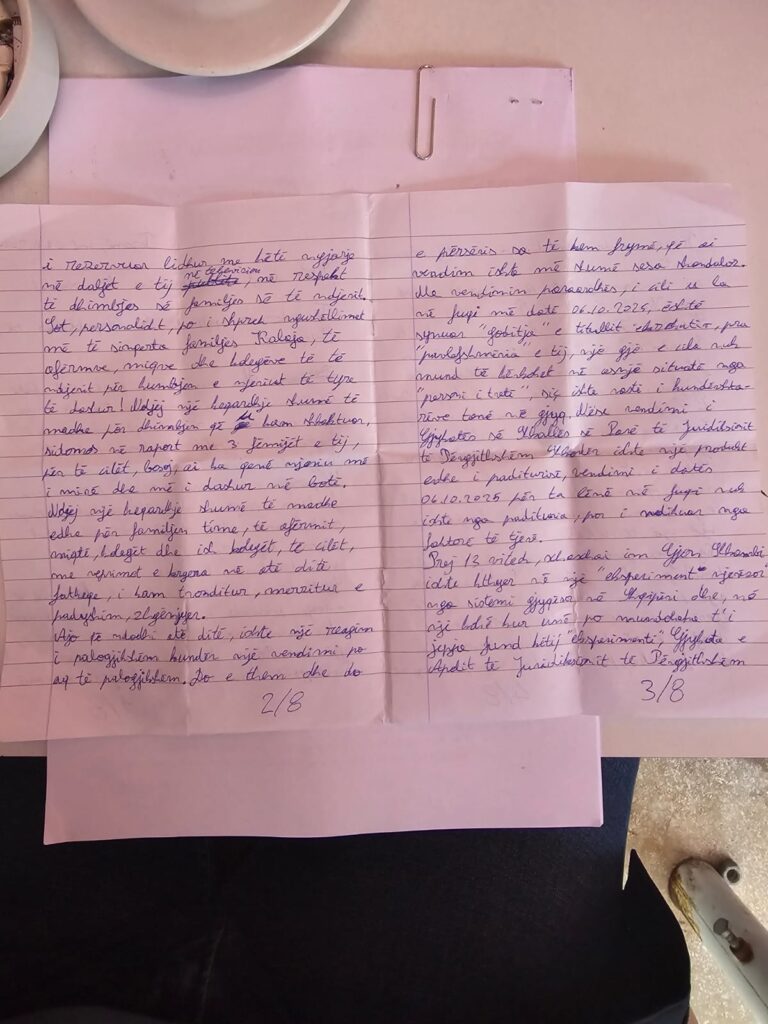 i rezervuar lidhur me këtë ngjarje
në daljet e tij në televizion, në respekt
të dhimbjes së familjes së të ndjerit.
Sot, personalisht, po i shpreh ngushëllimet
më të sinqerta familjes Kalaja, të
afërmve, miqve dhe kolegëve të të
ndjerit për humbjen e njeriut të tyre
të dashur! Ndjej një keqardhje shumë të
madhe për dhimbjen që ju kam shkaktuar,
sidomos në raport me 3 fëmijët e tij,
për të cilët, besoj, ai ka qenë njeriu më
i mirë dhe më i dashur në botë.
Ndjej një keqardhje shumë të madhe
edhe për familjen time, të afërmit,
miqtë, kolegët dhe ish kolegët, të cilët,
me veprimet e kryera në atë ditë
fatkeqe, i kam tronditur, mërzitur e
padyshim, zhgënjyer.
Ajo që ndodhi atë ditë, ishte një reagim
i palogjikshëm kundër një vendimi po
aq të palogjikshëm. Do e them dhe do
2/8
e përsëris sa të kem frymë, që ai
vendim ishte më shumë sesa skandaloz.
Me vendimin paraardhës, i cili u la
në fuqi më datë 06.10.2025, është
synuar "goditja" e titullit ekzekutiv, pra
"pavlefshmëria" e tij, një gjë e cila nuk
mund të kërkohet në asnjë situatë nga
"personi i tretë", siç ishte rasti i kundërshta-
rëve tanë në gjyq. Nëse vendimi i
Gjykatës së Shkallës së Parë të Juridiksionit
të Përgjithshëm Shkodër ishte një produkt
edhe i paditurisë, vendimi i datës
06.10.2025 për ta lënë në fuqi nuk
ishte nga padituria, por i ndikuar nga
faktorë të tjerë.
Prej 13 vitesh, xhaxhai im Gjon
ishte kthyer në një "eksperiment njerëzor"
nga sistemi gjyqësor në Shqipëri dhe, në
një kohë kur unë po mundohesha t'i
jepja fund këtij "eksperimenti", Gjykata e
Apelit të Juridiksionit të Përgjithshëm
3/8